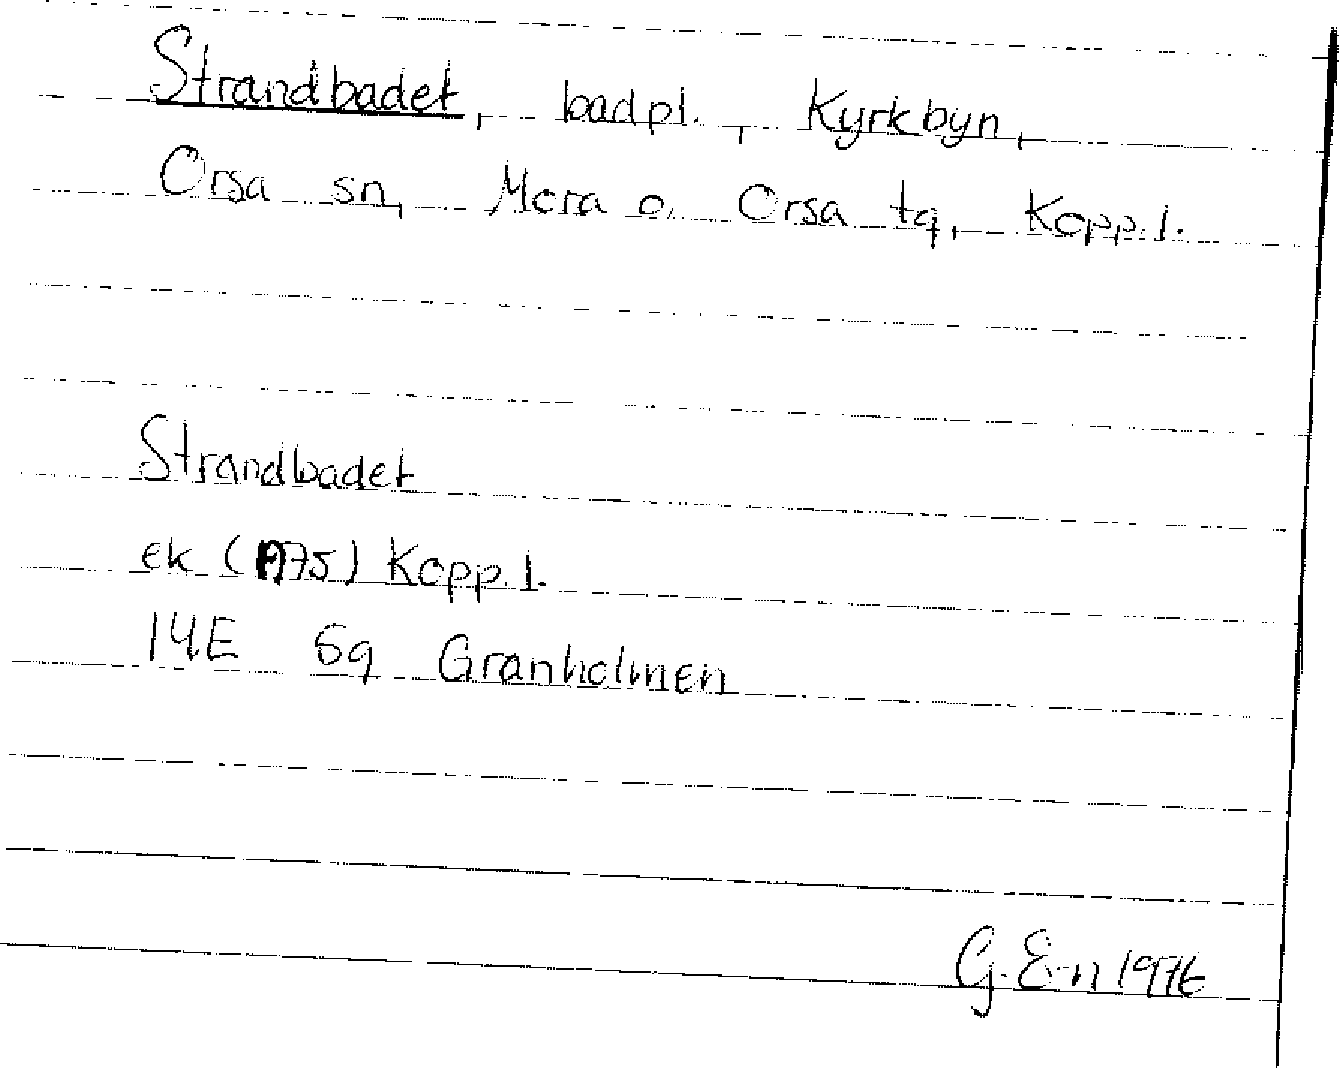 Strandbadet, badpl., Kyrkbyn,
Orsa sn, Mora o. Orsa tg, Kopp. l.
Strandbadet
ek (1975) Kopp. l.
14E 5g Granholmen
G. E-n 1976